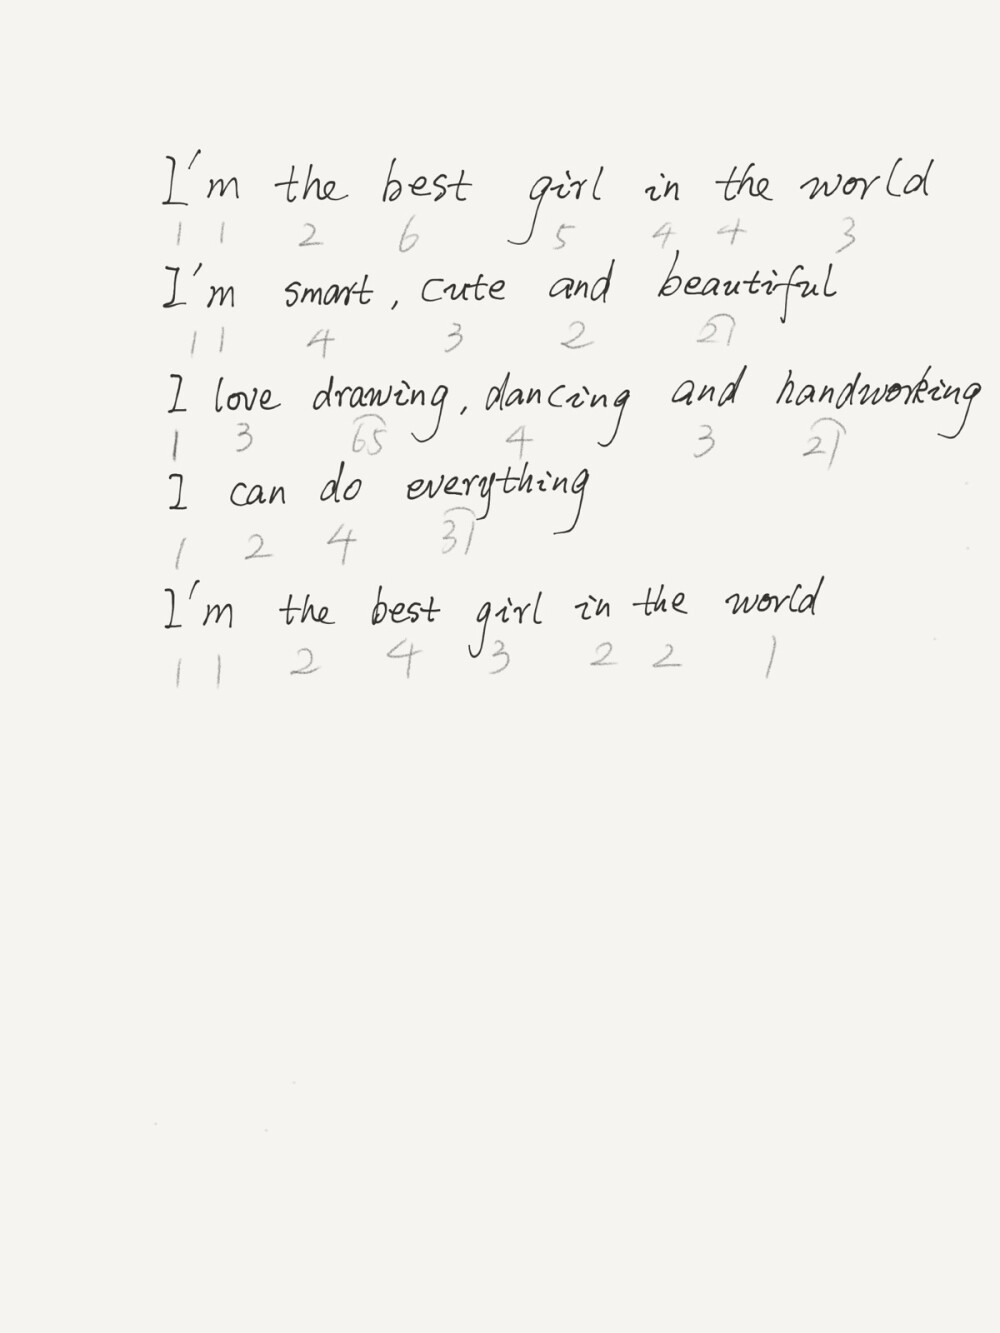 I'm the best girl in the world
1 1 2 6 5 4 4 3
I'm smart, cute and beautiful
1 1 4 3 2 21
I love drawing, dancing and handworking
1 3 65 4 3 21
I can do everything
1 2 4 31
I'm the best girl in the world
1 1 2 4 3 2 2 1